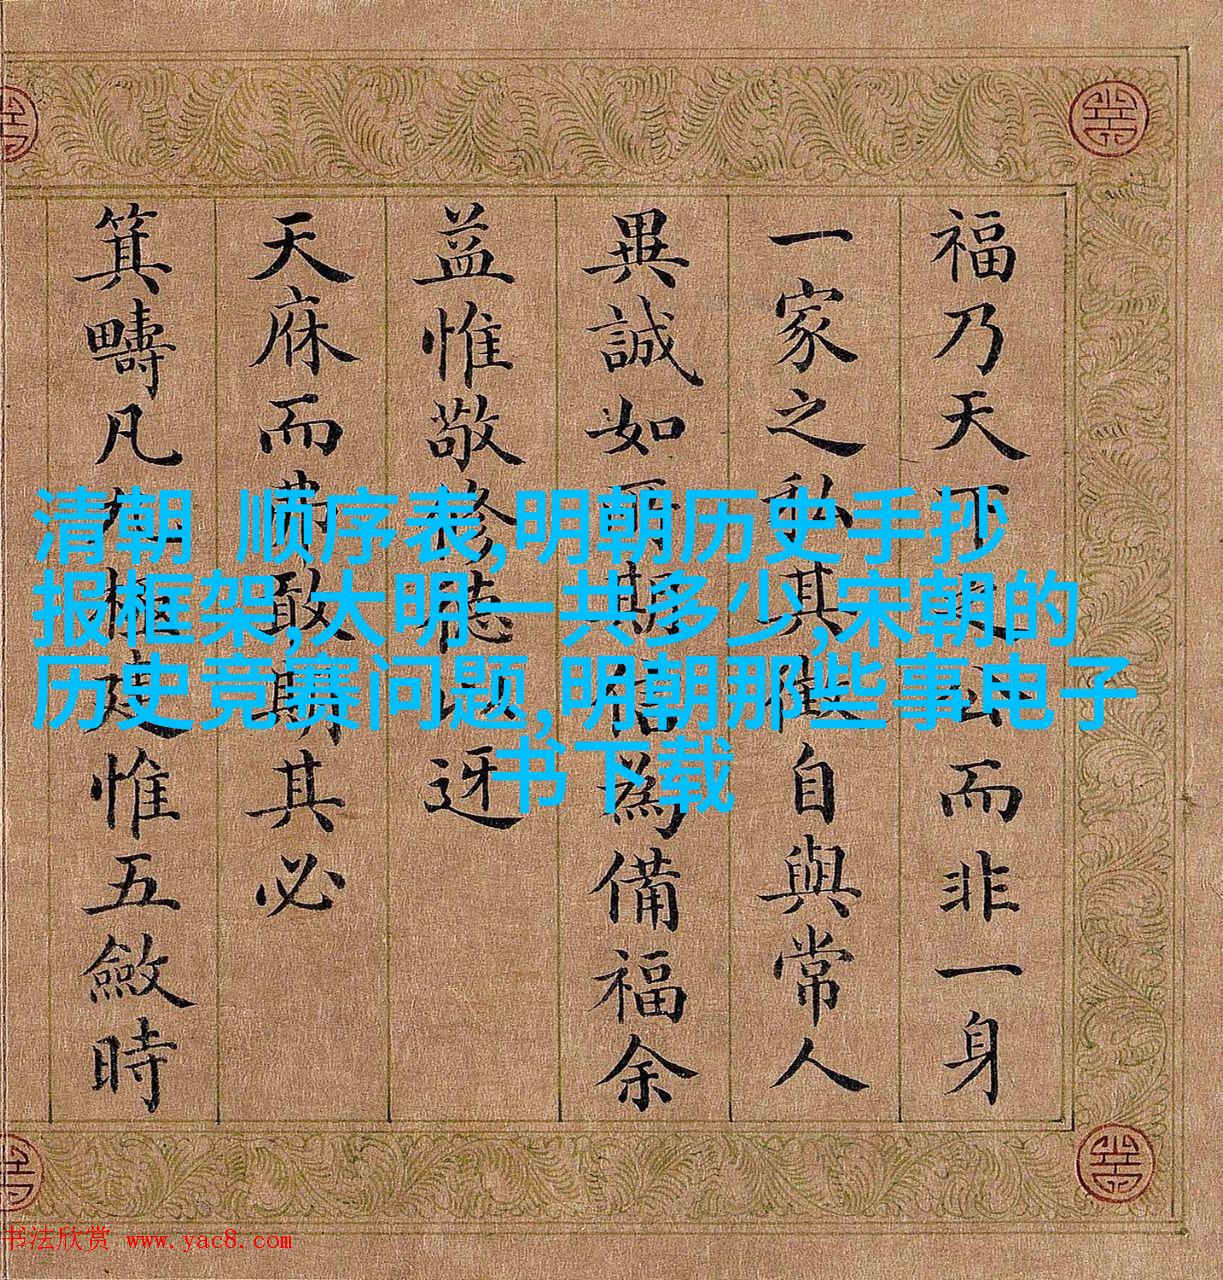 福乃天下公而非一身
一家之私其自與常人
異誠如期為備福余
益惟敬修迓
天庥而敢期其必
箕疇凡極建惟五斂時
清朝 顺序表,明朝历史手抄
报框架,大明一共多少,宋朝的
历史竞赛问题,明朝那些事电子
书下载
书法欣赏 www.yac8.com